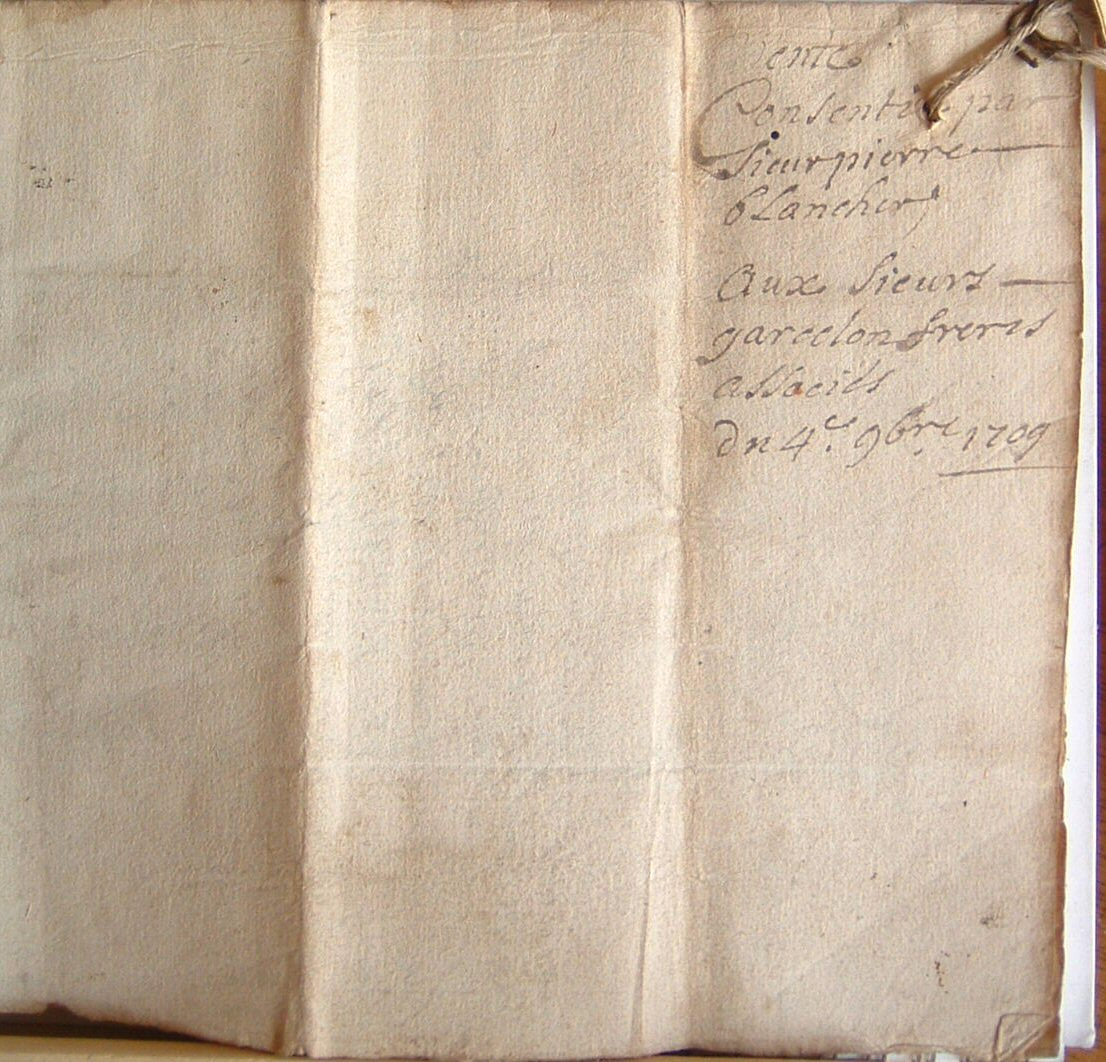 Vente
Consentie par
Sieur pierre
blancher
Aux Sieurs
garcelon freres
associés
Du 4.e 9bre 1709